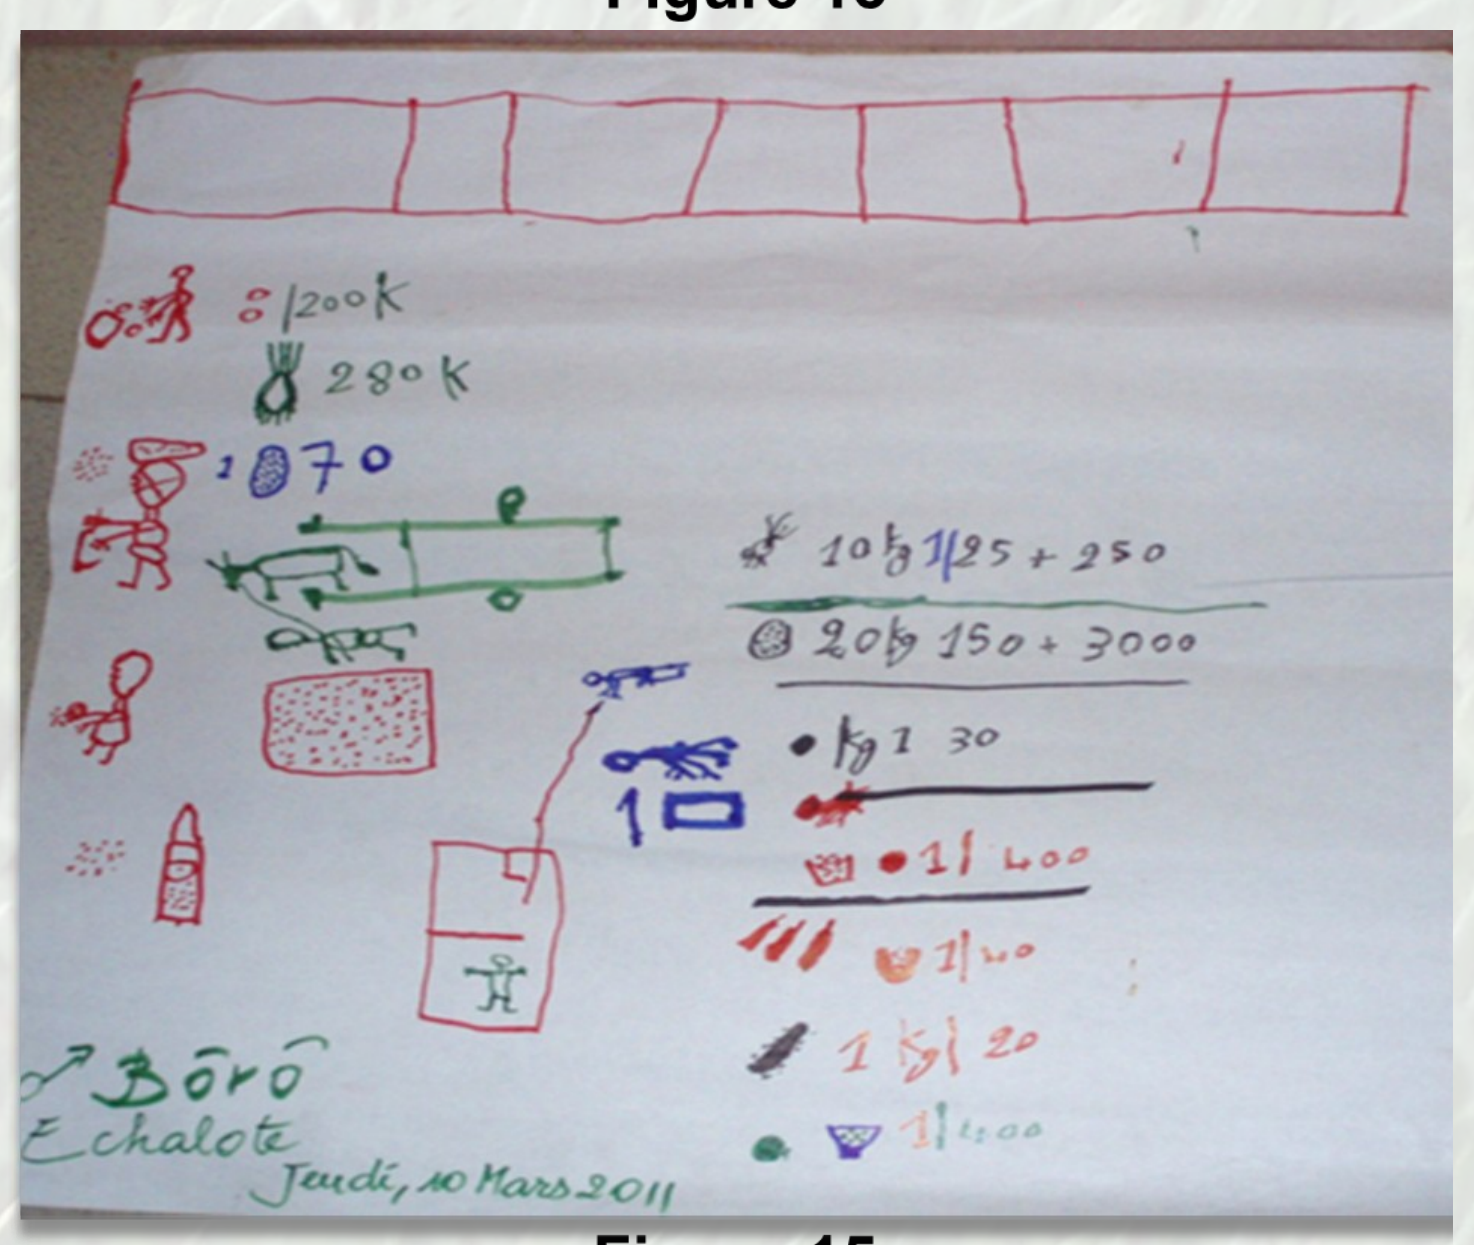 : 1200K
280K
1 70
10 kg 1/25 + 250
20kg 150 + 3000
kg 1 30
1
1/ 400
1/40
1 kg/ 20
1/400
Bōrō
Echalote
Jeudi, 10 Mars 2011